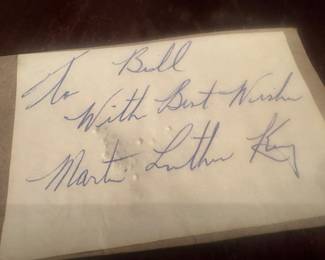 To Bill
With Best Wishes
Martin Luther King